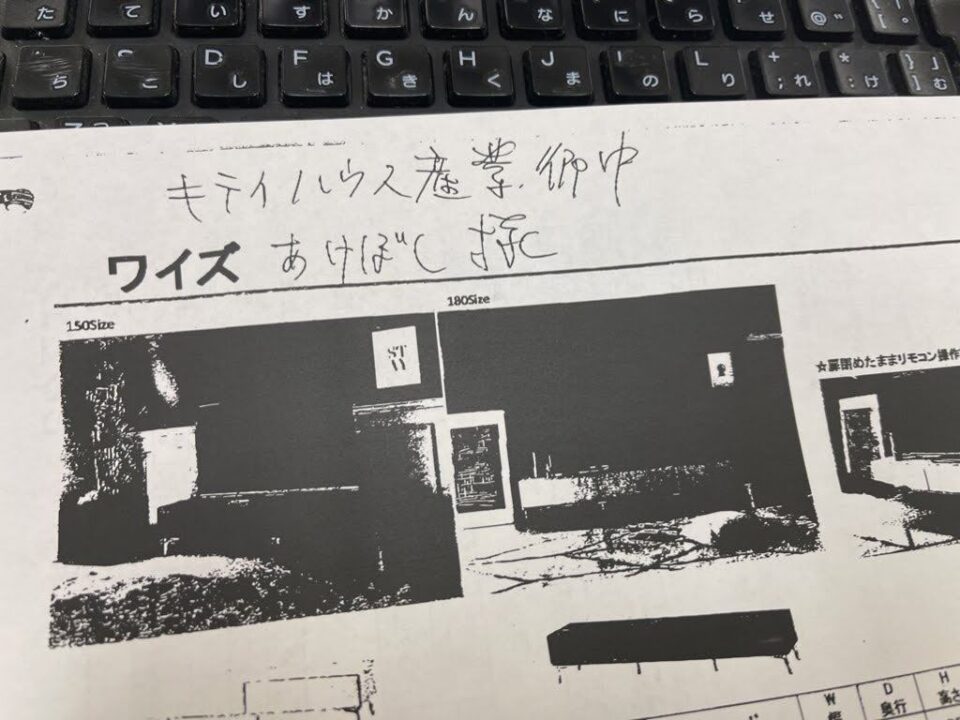 た て い す か ん な に ら せ @゛ [ ゜
ち S こ D し F は G き H く J ま I の L り + ; れ * : け } 」 ] む
キテイハウス産業.御中
ワイズ あけぼし 様
150Size
180Size
ST
★扉閉めたままリモコン操作
W
D 奥行
H 高さ